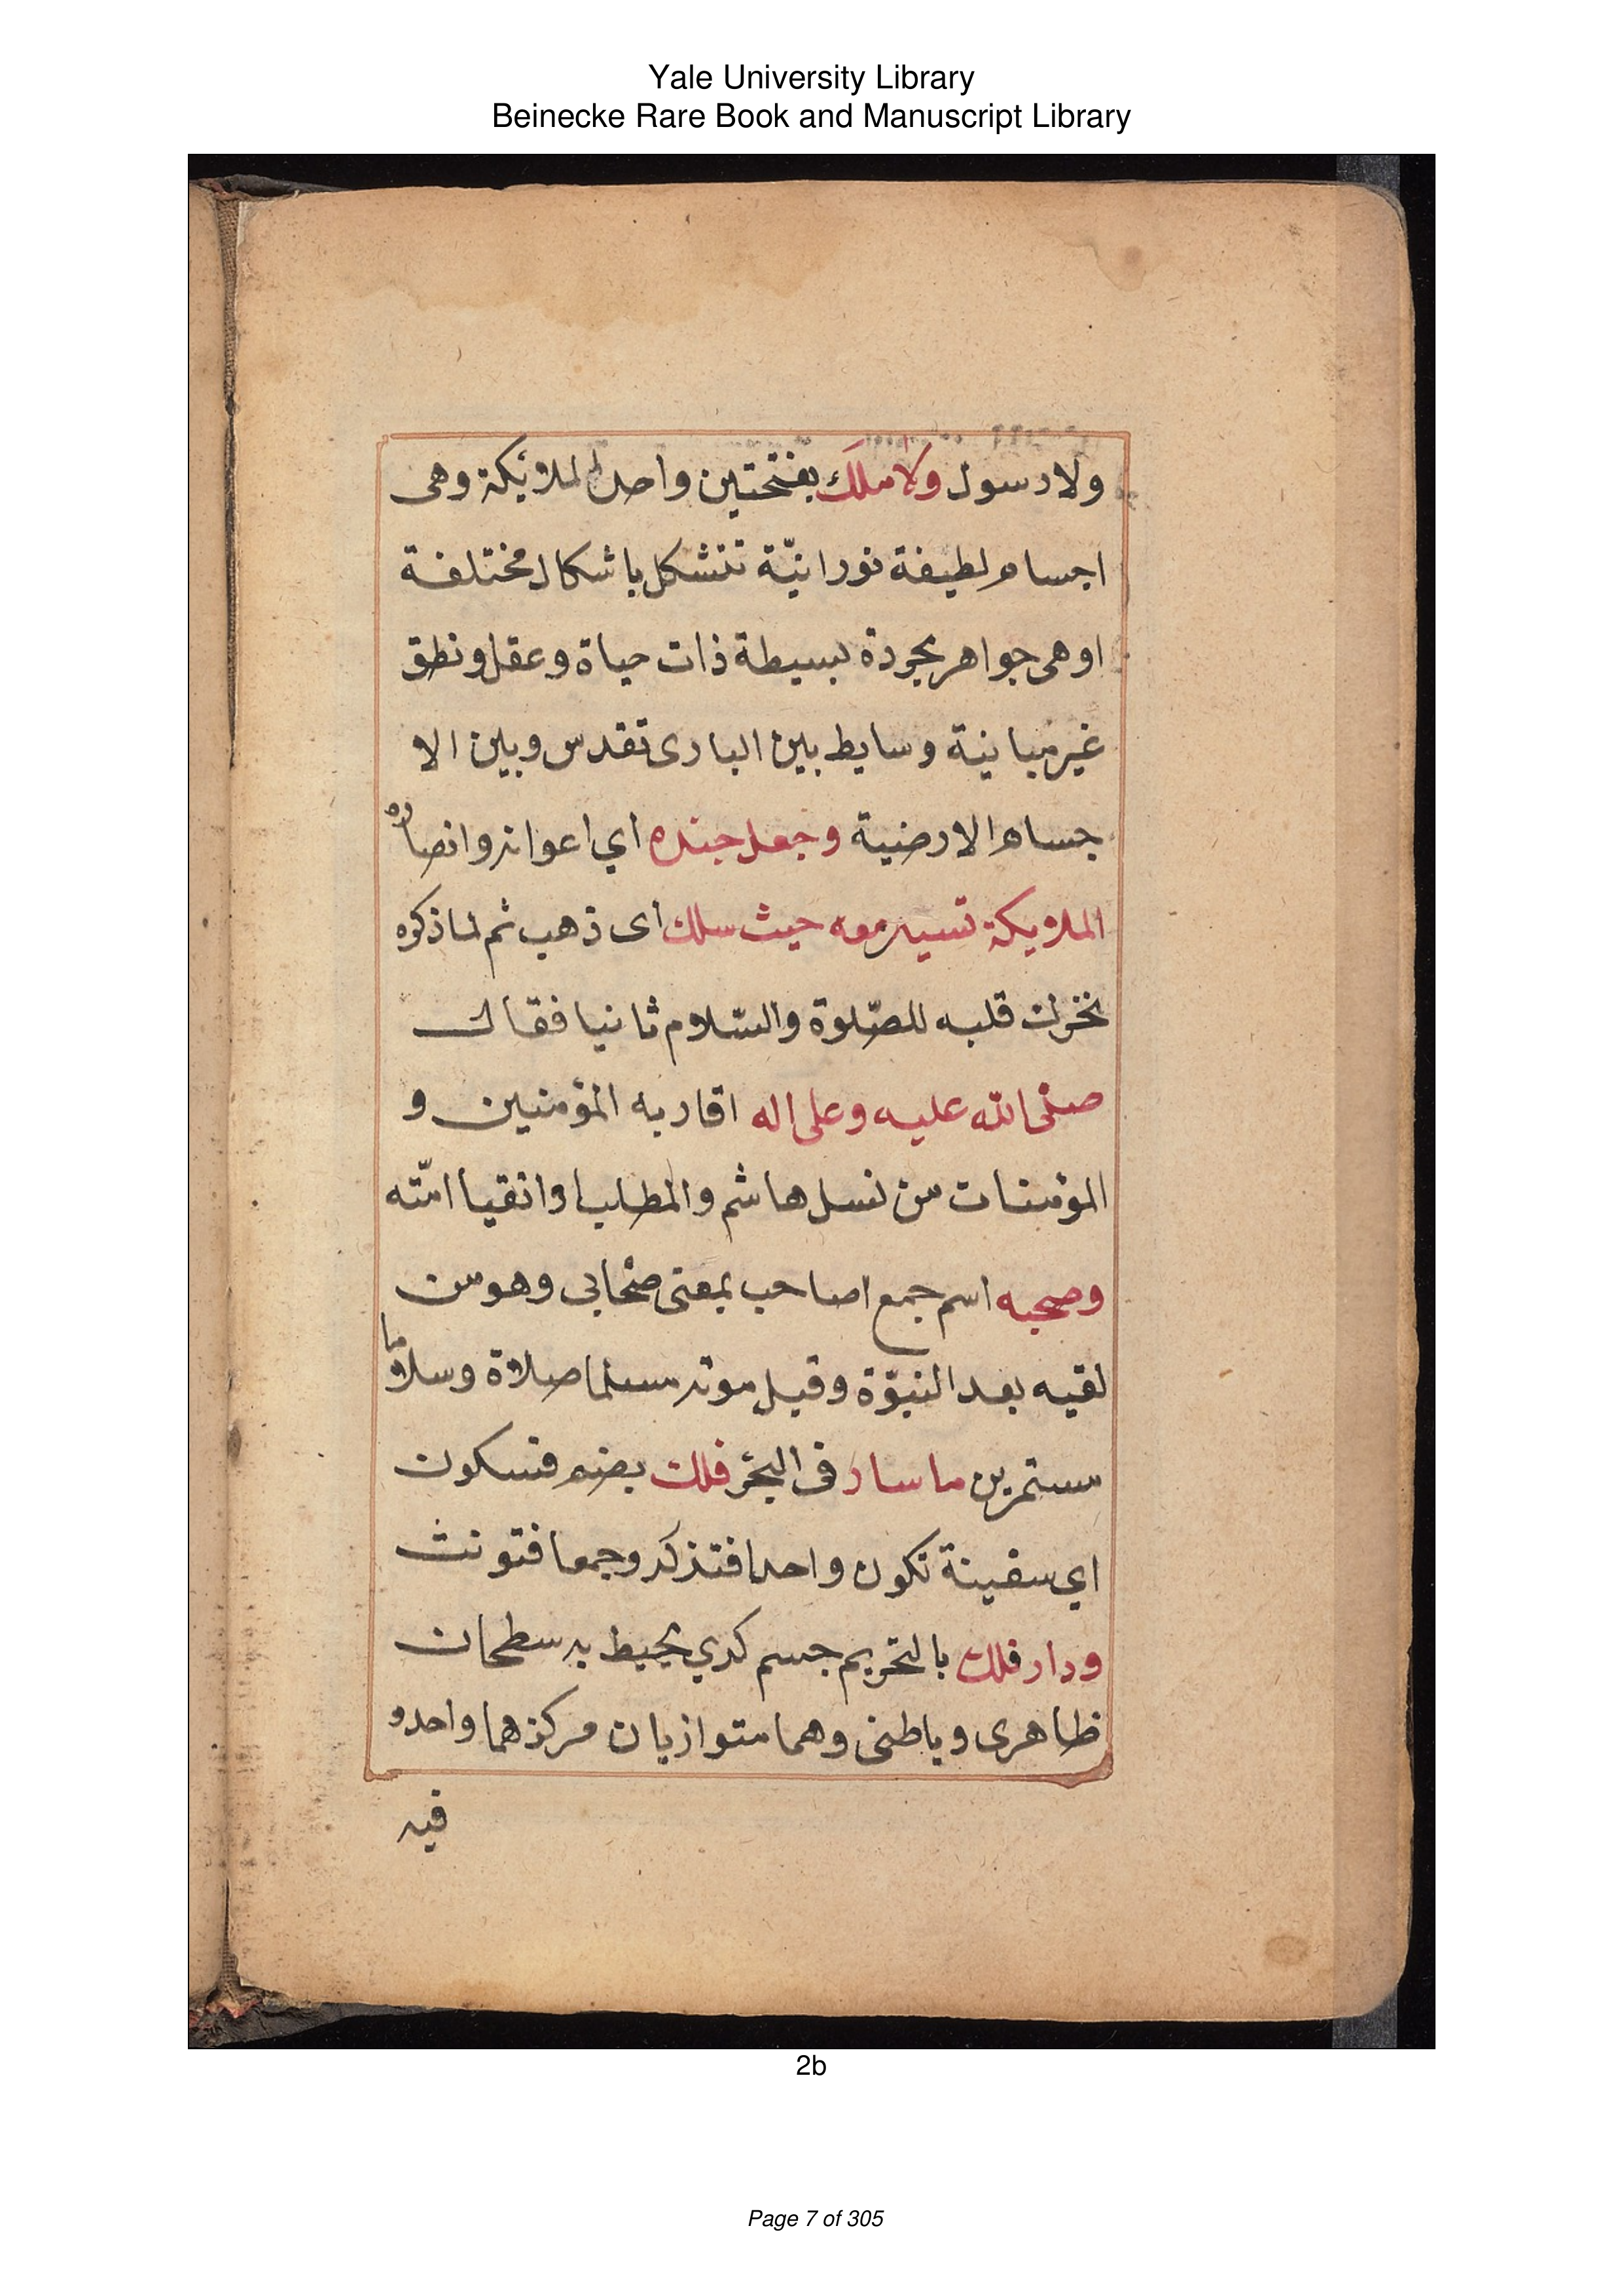 Yale University Library
Beinecke Rare Book and Manuscript Library
ولا رسول ولا ملك بفتحتين واحد الملائكة وهى
اجسام لطيفة نورانيّة تتشكل باشكال مختلفة
او هى جواهر مجردة بسيطة ذات حياة وعقل ونطق
غير مباينة وسايط بين البارى تقدس وبين الا
جسام الارضية وجعل جنده اي اعوانه وانصاره
الملايكة تسير معه حيث سلك اى ذهب ثم لما ذكره
تحرك قلبه للصّلوة والسّلام ثانيا فقال
صلى الله عليه وعلى اله اقاربه المؤمنين و
المؤمنات من نسل هاشم والمطلب او اتقيا امّته
وصحبه اسم جمع لصاحب بمعنى صحابى وهو من
لقيه بعد النبوّة وقبل موته مسلما صلاة وسلاما
مستمرين ما سار فى البحر فلك بضم فسكون
اي سفينة تكون واحدا فتذكر وجمعا فتونث
ودار فلك بالتحريم جسم كري يحيط به سطحان
ظاهرى وباطنى وهما متوازيان مركزهما واحد و
فيه
2b
Page 7 of 305